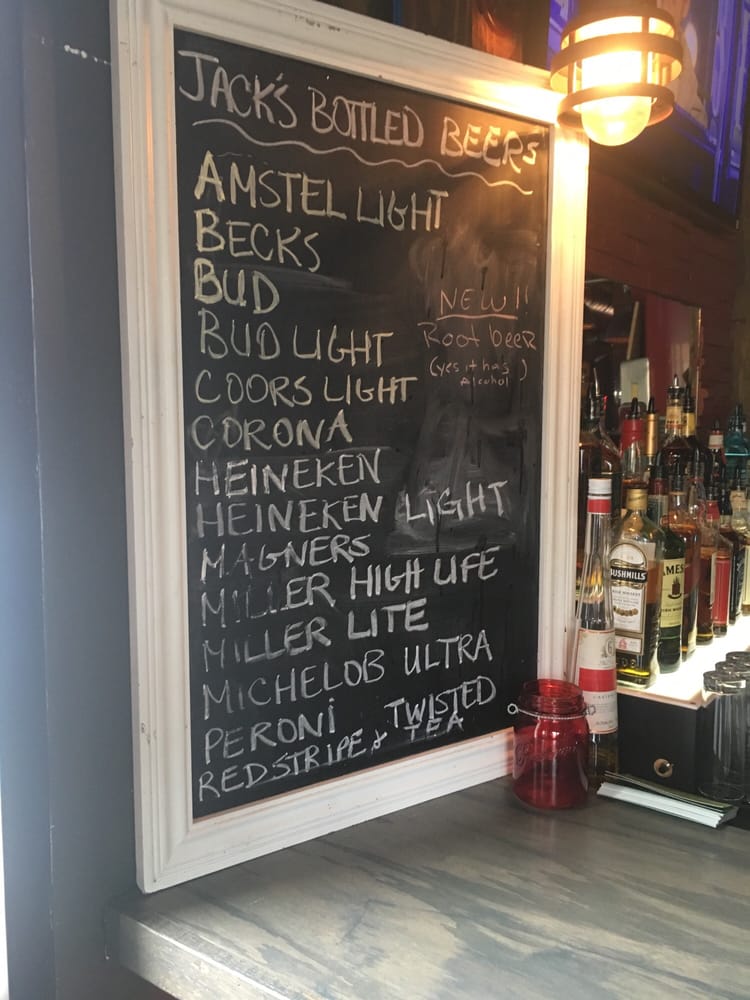 JACK'S BOTTLED BEERS
AMSTEL LIGHT
BECKS
BUD
BUD LIGHT
COORS LIGHT
CORONA
HEINEKEN
HEINEKEN LIGHT
MAGNERS
MILLER HIGH LIFE
MILLER LITE
MICHELOB ULTRA
PERONi
RED STRIPE & TWISTED TEA
NEW!!
Root beeR
(yes it has Alcohol)
BUSHMILLS